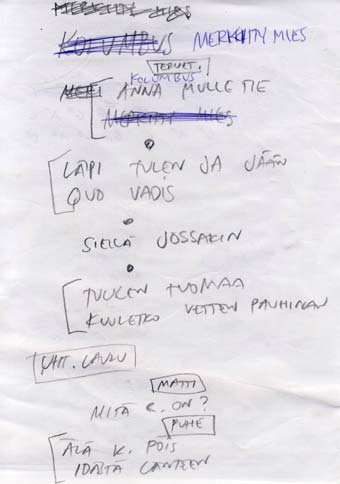 MERKITTY MIES
KOLUMBUS MERKITTY MIES
TERVET.
KOLUMBUS
MERI ANNA MULLE TIE
MERKITTY MIES
LÄPI TULEN JA JÄÄN
QUO VADIS
SIELLÄ JOSSAKIN
TUULEN TUOMAA
KUULETKO VETTEN PAUHINAN
YHT. LAULU
MATTI
MITÄ R. ON?
PUHE
ÄLÄ K. POIS
IDÄSTÄ LÄNTEEN